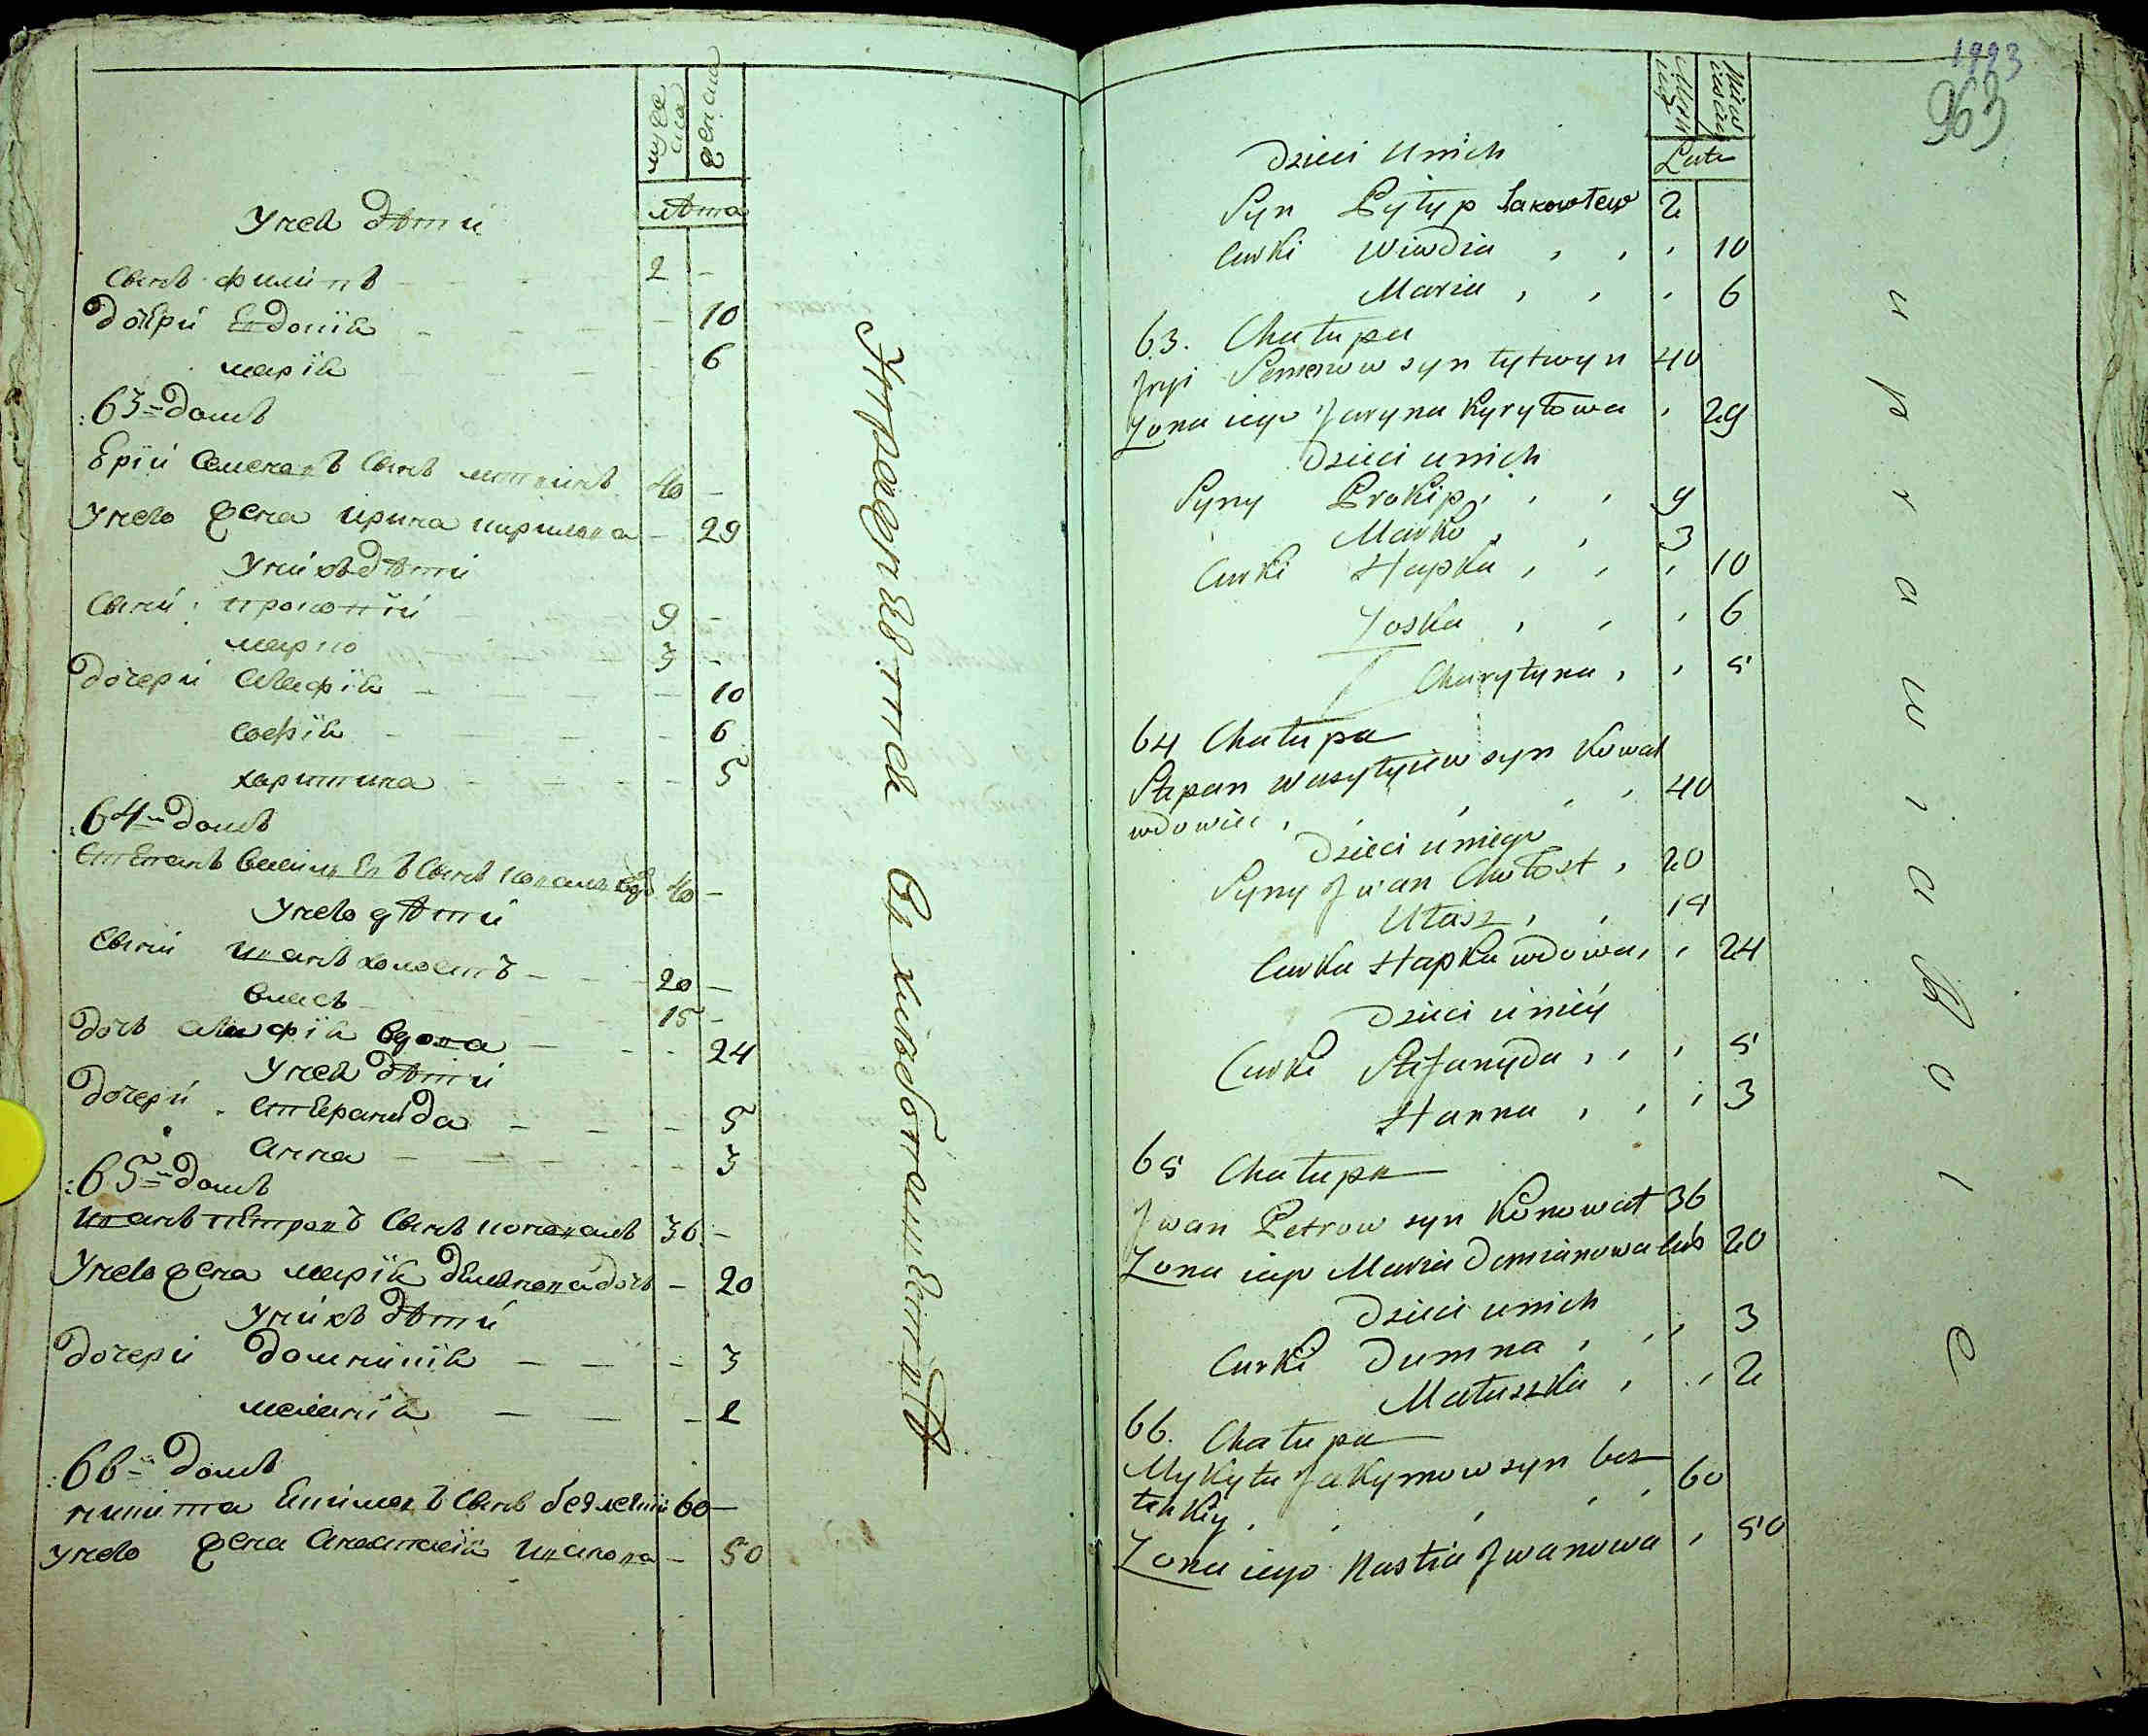 мужеска
женска
лѣта
Унея дѣти
Сынъ филіпъ 2 -
дочери Евдокія - 10
марія 6
:63= домъ
Ерій Семеновъ Сынъ литвинъ 40 -
Унего жена ирина кирилова - 29
Унихъ дѣти
Сыны: прокопій 9 -
марко 3 -
дочери Агафія - 10
софія - 6
харитина - 5
:64= домъ
Степанъ Василиевъ Сынъ ковалъ вдов 40 -
Унего дѣти
Сыны иванъ холостъ - 20 -
власъ 15 -
дочь Агафія вдова - 24
Унея дѣти
дочери Стефанида - 5
Анна - 3
:65= домъ
иванъ петровъ Сынъ коновалъ 36 -
Унего жена марія демянова дочь - 20
Унихъ дѣти
дочери домникія - 3
меланія - 2
:66= домъ
никита Екимовъ Сынъ безлепкій 60 -
Унего жена Анастасія иванова - 50
Упражняется въ хлебопашествѣ
1993
963
Lata
Dzieci u nich
Syn Pyłyp Jakowłew 2
Curki Wiwdia , , , 10
Maria , , , 6
63. Chałupa
Jryi Semenow syn Łytwyn 40
Zona iego Jaryna Kyryłowa , 29
Dzieci u nich
Syny Prokip , , , 9
Marko , , 3
Curki Hapka , , , 10
Zoska , , , 6
Charytyna , , 5
64 Chałupa
Stepan Wasylyiew syn Kował
wdowiec , , , , 40
Dzieci u niego
Syny Jwan Chołost , 20
Ułasz , , 14
Curka Hapka wdowa , , 24
Dzieci u niey
Curki Stefanyda , , , 5
Hanna , , , 3
65 Chałupa
Jwan Petrow syn Konował 36
Zona iego Maria Demianowa 20
Dzieci u nich
Curki Dumna , , , 3
Małaszka , , , 2
66. Chałupa
Mykyta Jakymow syn bez
lepkiy , , , , 60
Zona iego Nastia Jwanowa , 50
uprawia Role